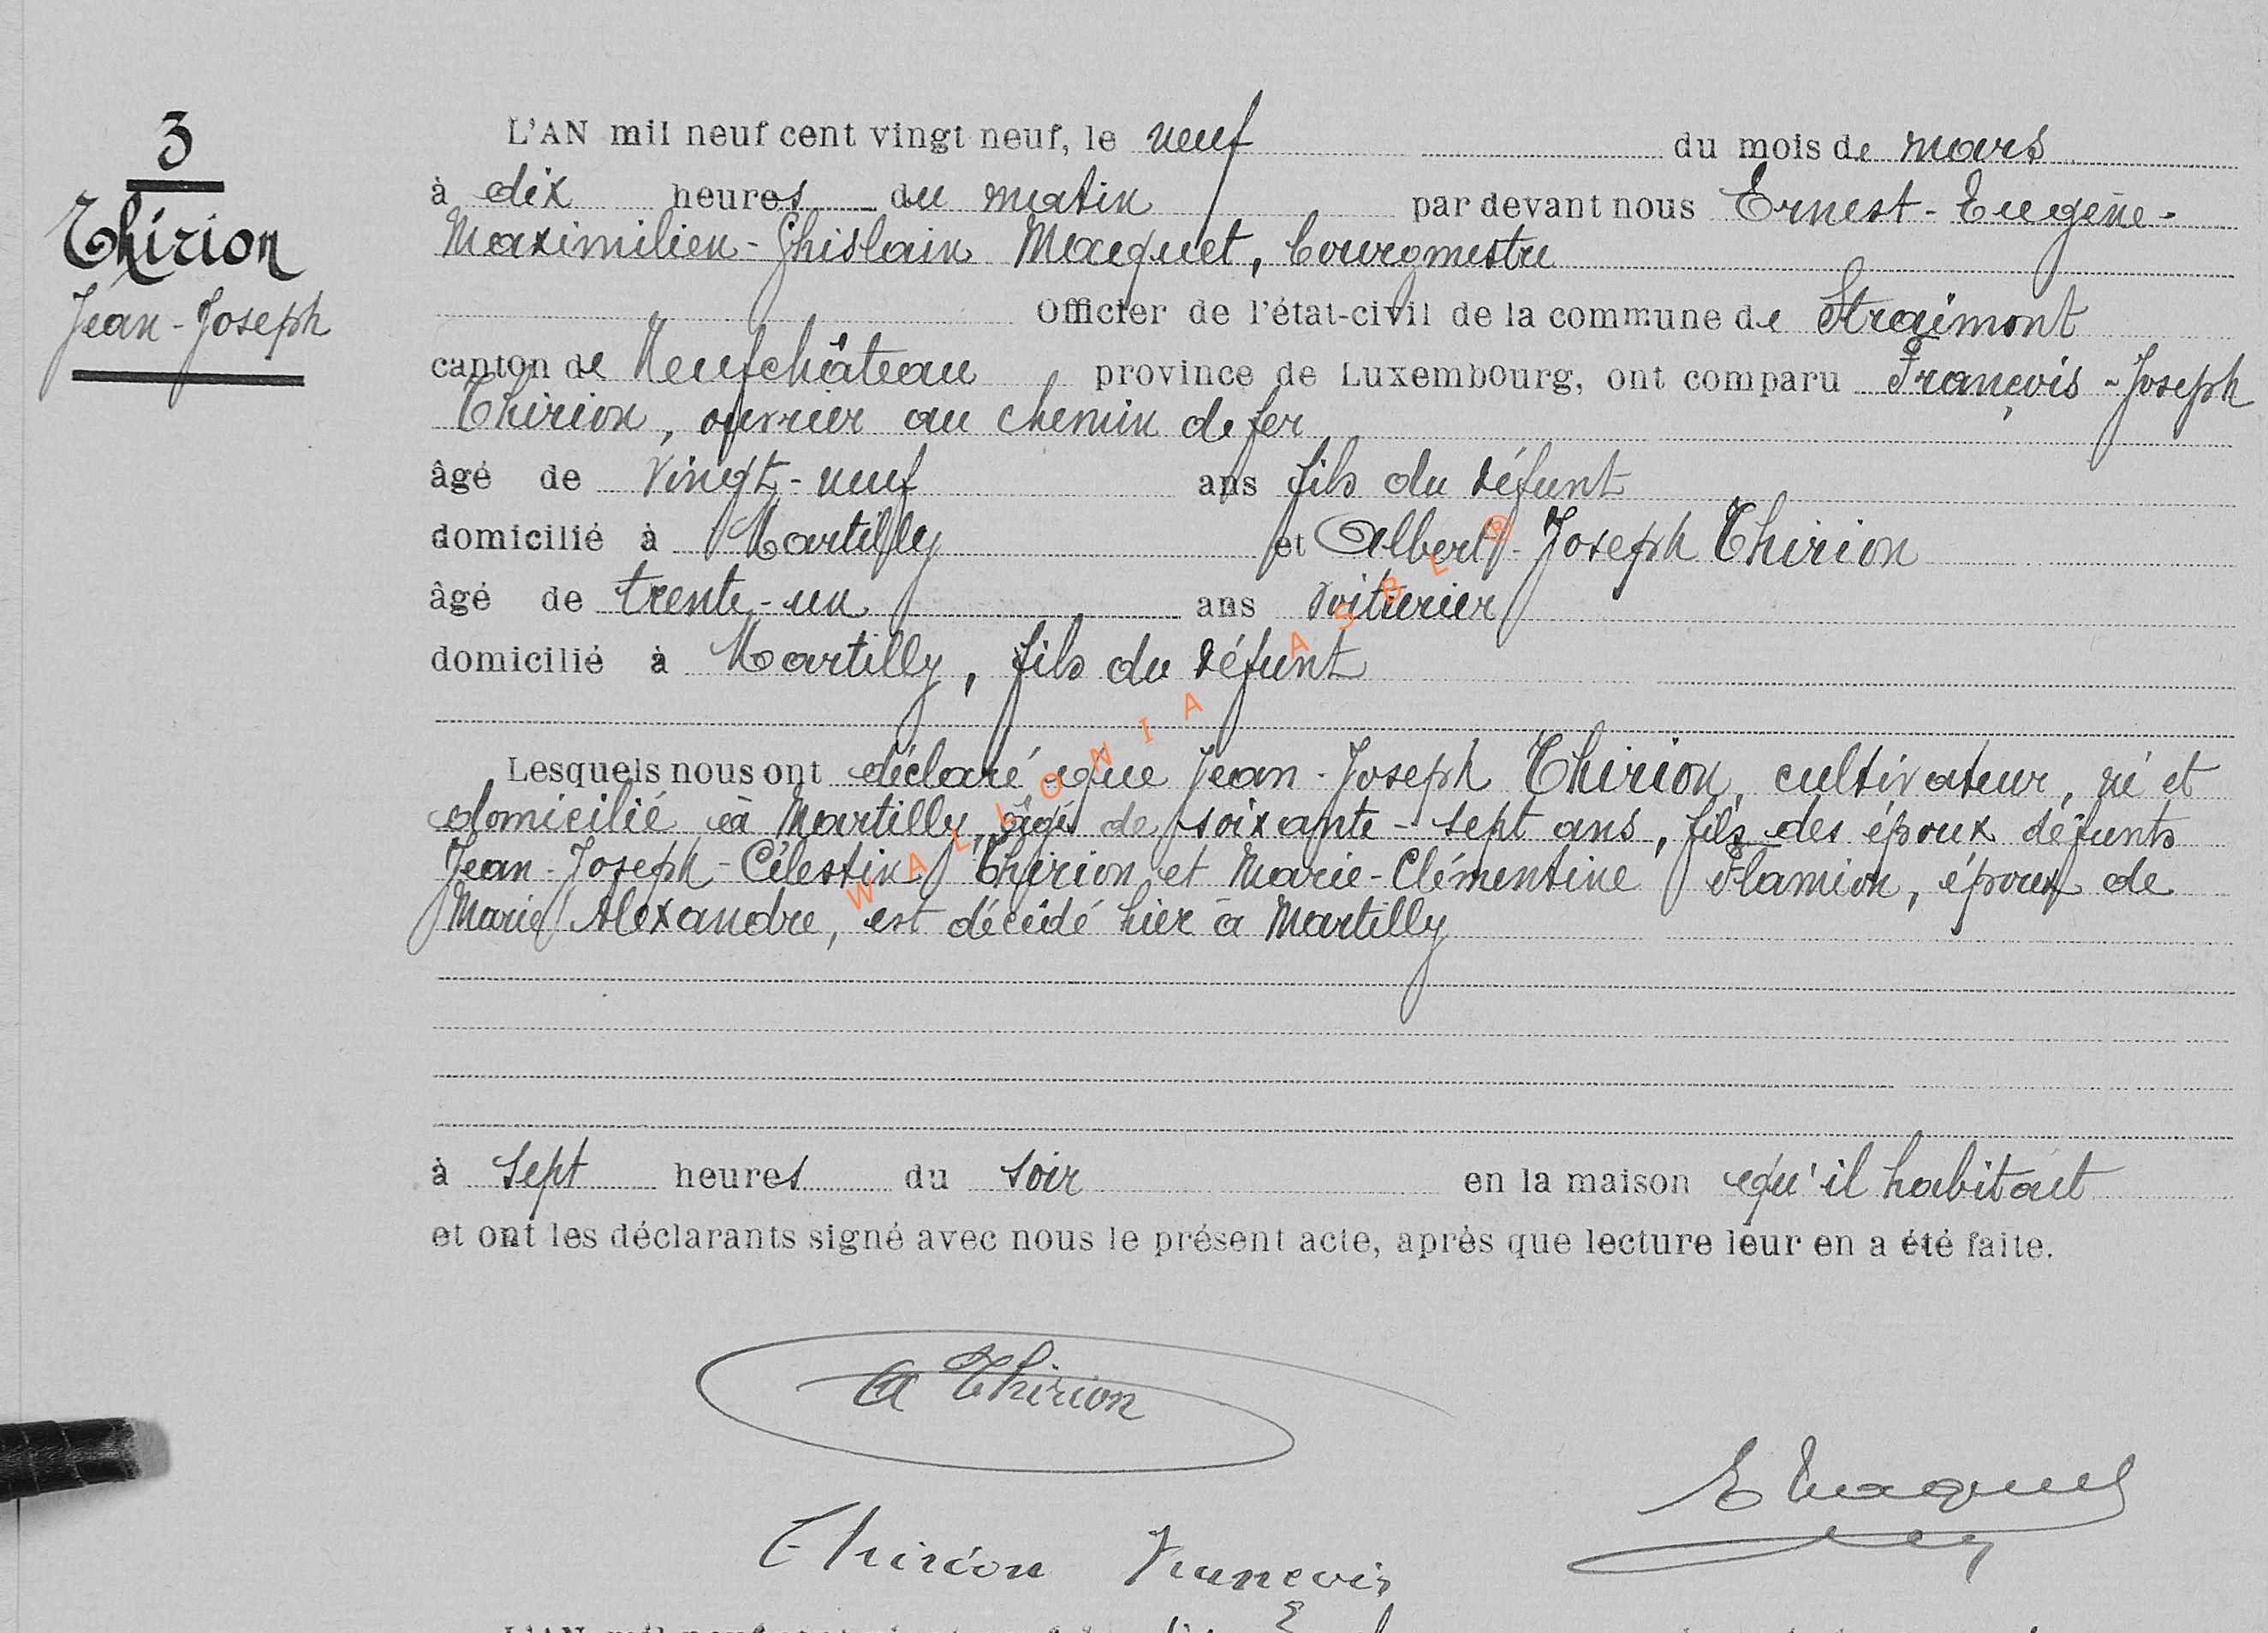 3
Thirion
Jean-Joseph
L'AN mil neuf cent vingt neuf, le neuf du mois de mars
à dix heures du matin par devant nous Ernest-Eugène-
Maximilien-Ghislain Maquet, bourgmestre
Officier de l'état-civil de la commune de Straimont
canton de Neufchâteau province de Luxembourg, ont comparu François-Joseph
Thirion, ouvrier au chemin de fer
âgé de vingt-neuf ans fils du défunt
domicilié à Martilly et Albert-Joseph Thirion
âgé de trente-un ans voiturier
domicilié à Martilly, fils du défunt
Lesquels nous ont déclaré que Jean-Joseph Thirion, cultivateur, né et
domicilié à Martilly, âgé de soixante-sept ans, fils des époux défunts
Jean-Joseph-Célestin Thirion et Marie-Clémentine Flamion, époux de
Marie Alexandre, est décédé hier à Martilly
à sept heures du soir en la maison qu'il habitait
et ont les déclarants signé avec nous le présent acte, après que lecture leur en a été faite.
A Thirion
E Maquet
Thirion François
WALLONIA ASBL ®